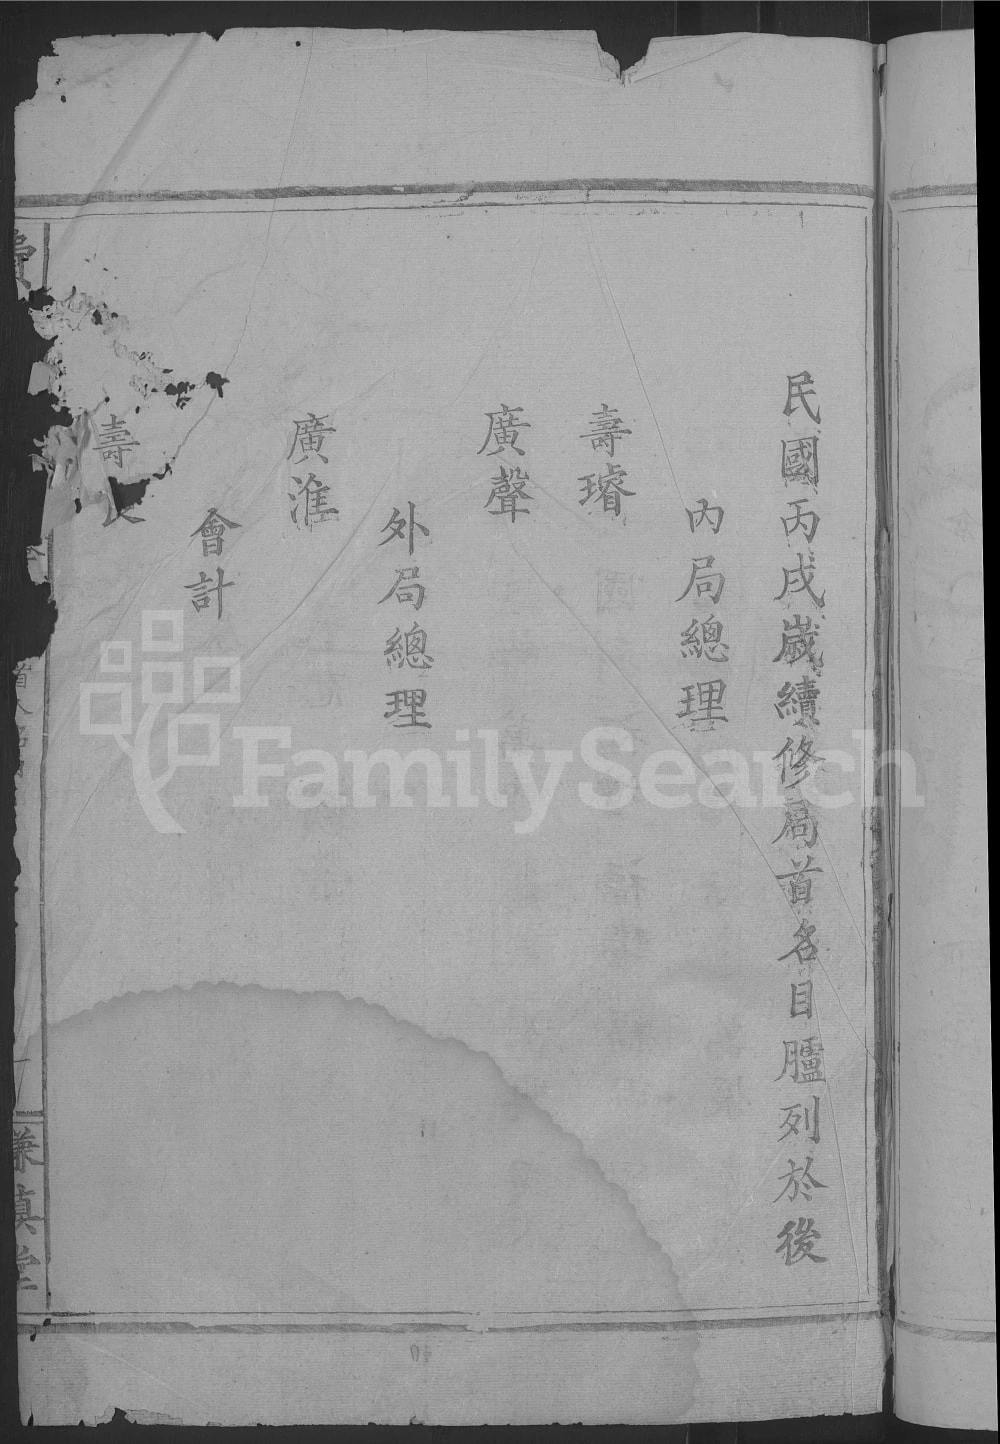 民國丙戌歲續修局首名目臚列於後
內局總理
壽璿
廣聲
外局總理
廣淮
會計
壽長
謙慎堂
FamilySearch